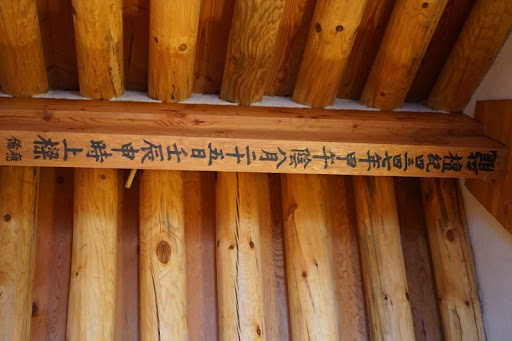 龍 檀紀四三四七年甲午 陰八月二十五日壬辰申時上樑
應
備